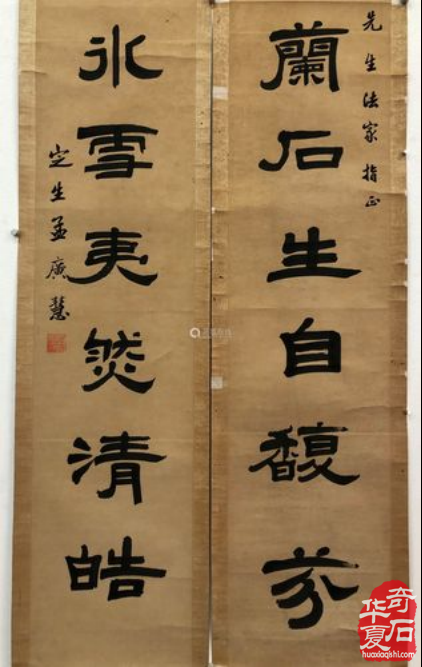 先生法家指正
蘭石生自馥芬
氷雪夷然清皓
定生孟廣慧
华夏奇石
huaxiaqishi.com